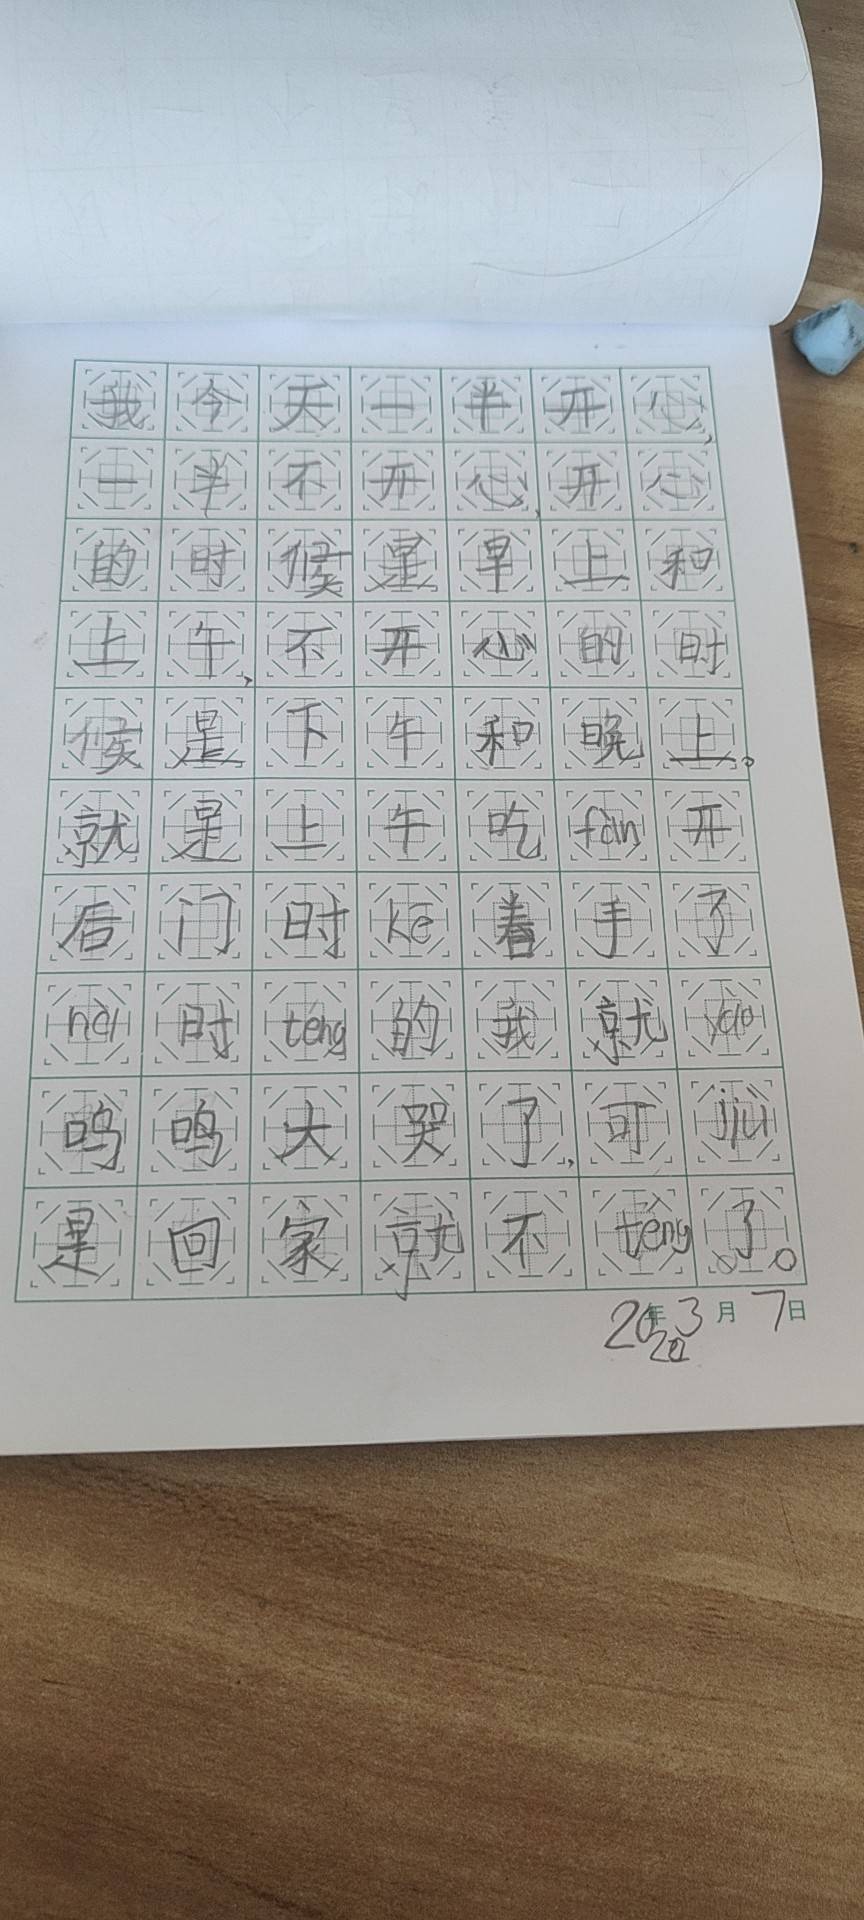 我今天一半开心,
一半不开心,开心
的时候是早上和
上午,不开心的时
候是下午和晚上。
就是上午吃fàn开
后门时kē着手了
nèi时téng的我就yào
呜呜大哭了,可jiù
是回家就不téng了。
20年3月7日
2021